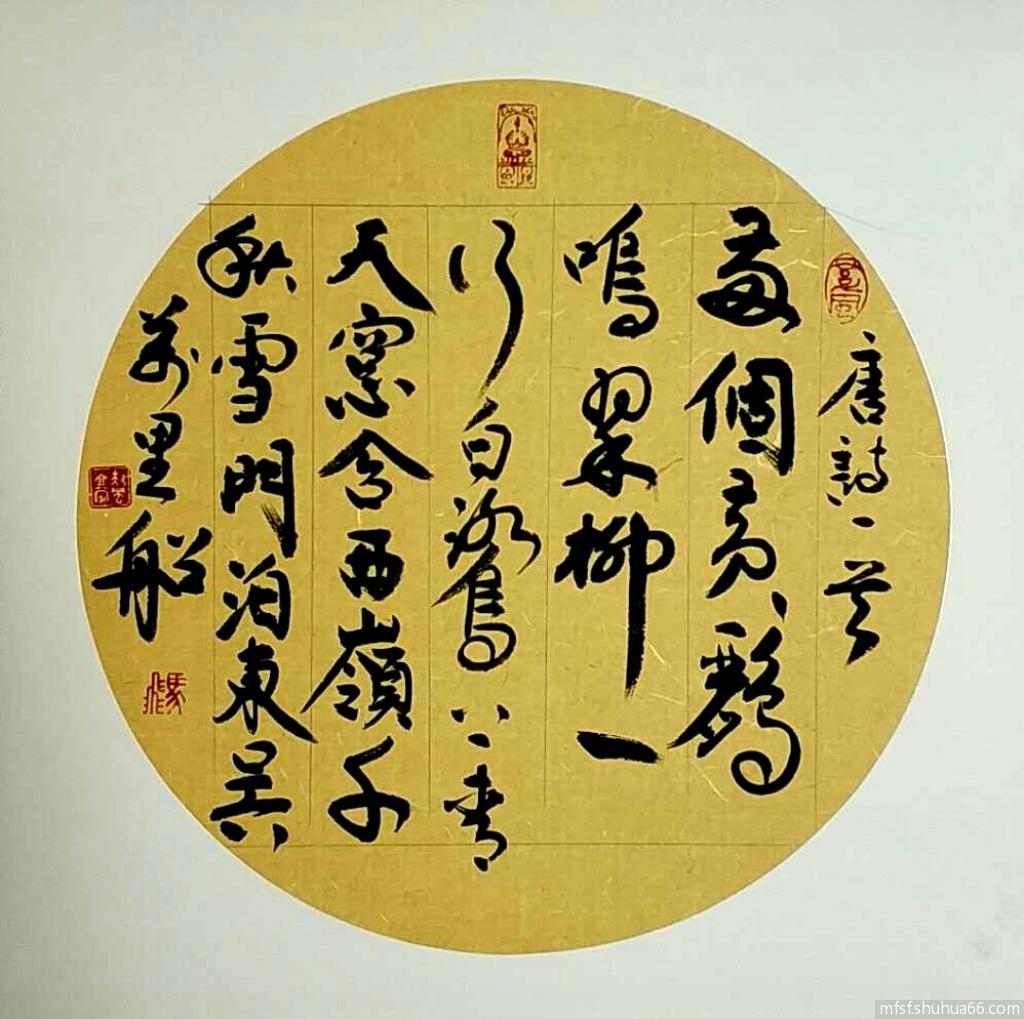 唐詩一首
兩個黃鸝
鳴翠柳一
行白鷺上青
天窓含西嶺千
秋雪門泊東吳
萬里船
mfsf.shuhua66.com